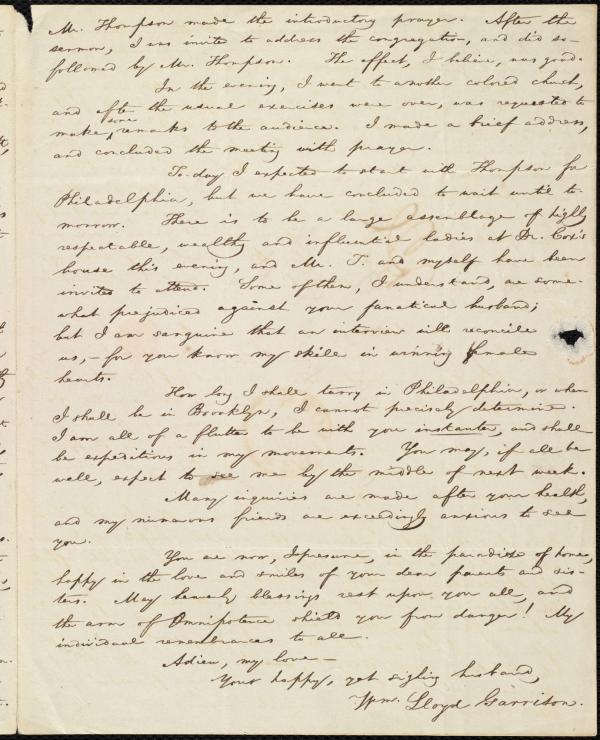 Mr. Thompson made the introductory prayer. After the
sermon, I was invite to address the congregation, and did so—
followed by Mr. Thompson. The effect, I believe, was good.
In the evening, I went to another colored church,
and after the usual exercises were over, was requested to
make some remarks to the audience. I made a brief address,
and concluded the meeting with prayer.
To-day I expected to start with Thompson for
Philadelphia, but we have concluded to wait until to-
morrow. There is to be a large assemblage of highly
respectable, wealthy and influential ladies at Dr. Cox's
house this evening, and Mr. T. and myself have been
invited to attend. Some of them, I understand, are some-
what prejudiced against your fanatical husband;
but I am sanguine that an interview will reconcile
us,—for you know my skill in winning female
hearts.
How long I shall tarry in Philadelphia, or when
I shall be in Brooklyn, I cannot precisely determine.
I am all of a flutter to be with you instanter, and shall
be expeditious in my movements. You may, if all be
well, expect to see me by the middle of next week.
Many inquiries are made after your health,
and my numerous friends are exceedingly anxious to see
you.
You are now, I presume, in the paradise of home,
happy in the love and smiles of your dear parents and sis-
ters. May heavenly blessings rest upon you all, and
the arm of Omnipotence shield you from danger! My
individual remembrances to all.
Adieu, my love—
Your happy, yet sighing husband,
Wm. Lloyd Garrison.